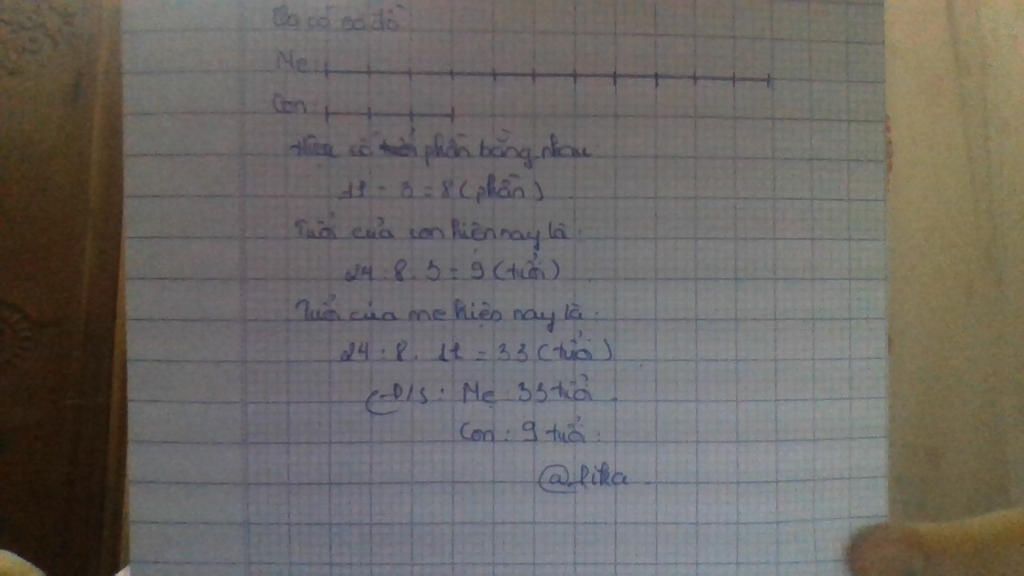 Ta có sơ đồ
Mẹ:
Con:
Hiệu số phần bằng nhau
11 - 3 = 8 (phần)
Tuổi của con hiện nay là:
24 : 8 . 3 = 9 (tuổi)
Tuổi của mẹ hiện nay là:
24 : 8 . 11 = 33 (tuổi)
Đ/S: Mẹ: 33 tuổi
Con: 9 tuổi.